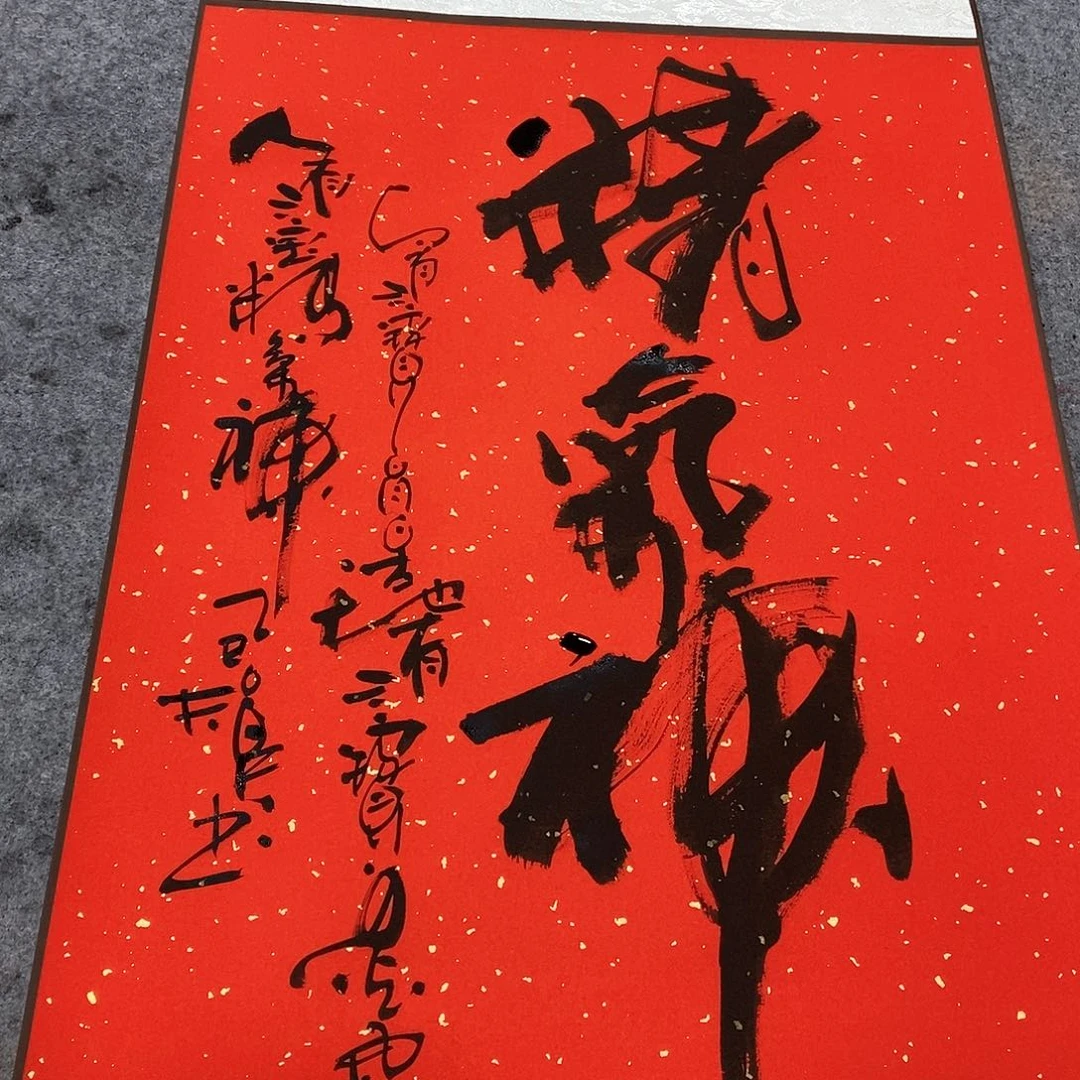 精氣神
天有三寶日月星地有三寶乃
人有三寶乃精氣神
書